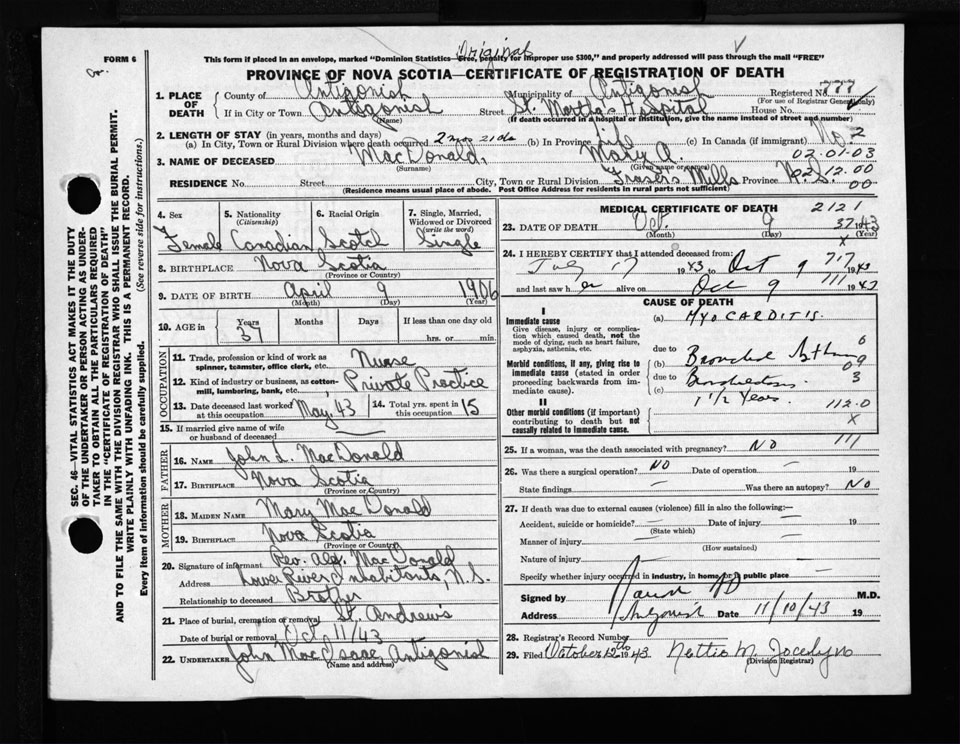 Original
FORM 6 This form if placed in an envelope, marked "Dominion Statistics—Free, penalty for improper use $300," and properly addressed will pass through the mail "FREE"
PROVINCE OF NOVA SCOTIA—CERTIFICATE OF REGISTRATION OF DEATH
SEC. 46—VITAL STATISTICS ACT MAKES IT THE DUTY
OF THE UNDERTAKER OR PERSON ACTING AS UNDER-
TAKER TO OBTAIN ALL THE PARTICULARS REQUIRED
IN THE "CERTIFICATE OF REGISTRATION OF DEATH"
AND TO FILE THE SAME WITH THE DIVISION REGISTRAR WHO SHALL ISSUE THE BURIAL PERMIT.
WRITE PLAINLY WITH UNFADING INK. THIS IS A PERMANENT RECORD.
Every item of information should be carefully supplied. (See reverse side for instructions.)
1. PLACE OF DEATH County of Antigonish Municipality of Antigonish Registered No 777
(For use of Registrar General only)
If in City or Town Antigonish Street St. Martha's Hospital House No.
(Name) (If death occurred in a hospital or institution, give the name instead of street and number)
2. LENGTH OF STAY (in years, months and days)
(a) In City, Town or Rural Division where death occurred 2 mos 21 ds (b) In Province Life (c) In Canada (if immigrant) No. 2
3. NAME OF DECEASED MacDonald, Mary A. 02.01.03
(Surname) (Given name or names)
RESIDENCE No. Street City, Town or Rural Division Frasers Mills Province N.S. 02.12.00
(Residence means usual place of abode. Post Office Address for residents in rural parts not sufficient) 00
4. Sex 5. Nationality (Citizenship) 6. Racial Origin 7. Single, Married, Widowed or Divorced (write the word)
Female Canadian Scotch Single
8. BIRTHPLACE Nova Scotia
(Province or Country)
9. DATE OF BIRTH April 9 1906
(Month) (Day) (Year)
10. AGE in Years Months Days If less than one day old
37 hrs. or min.
11. Trade, profession or kind of work as spinner, teamster, office clerk, etc. Nurse
12. Kind of industry or business, as cotton-mill, lumbering, bank, etc. Private Practice
13. Date deceased last worked at this occupation May, 43 14. Total yrs. spent in this occupation 15
15. If married give name of wife or husband of deceased
FATHER
16. NAME John L. MacDonald
17. BIRTHPLACE Nova Scotia
(Province or Country)
MOTHER
18. MAIDEN NAME Mary MacDonald
19. BIRTHPLACE Nova Scotia
(Province or Country)
20. Signature of informant Rev. Alex. MacDonald
Address Lower River Inhabitants, N.S.
Relationship to deceased Brother
21. Place of burial, cremation or removal St. Andrew's
Date of burial or removal Oct 11/43
22. UNDERTAKER John MacIsaac Antigonish
(Name and address)
MEDICAL CERTIFICATE OF DEATH 2121
23. DATE OF DEATH Oct. 9 1943
(Month) (Day) (Year)
37
X
24. I HEREBY CERTIFY that I attended deceased from: 717
July 17 1943 to Oct 9 1943
and last saw her alive on Oct 9 1943
111
CAUSE OF DEATH
I
Immediate cause (a) MYOCARDITIS.
Give disease, injury or complication which caused death, not the mode of dying, such as heart failure, asphyxia, asthenia, etc.
due to 6
Morbid conditions, if any, giving rise to immediate cause (stated in order proceeding backwards from immediate cause). (b) Bronchial Asthma 09
due to 3
(c)
1 1/2 Years.
II 112.0
Other morbid conditions (if important) contributing to death but not causally related to immediate cause. X
25. If a woman, was the death associated with pregnancy? NO 111
26. Was there a surgical operation? NO Date of operation — 19
State findings — Was there an autopsy? NO
27. If death was due to external causes (violence) fill in also the following:—
Accident, suicide or homicide? — Date of injury — 19
(State which)
Manner of injury —
(How sustained)
Nature of injury —
Specify whether injury occurred in industry, in home, or in public place —
Signed by M.D.
Address Antigonish Date 11/10/43 19
28. Registrar's Record Number
29. Filed October 12th 1943 Nettie M. Jocelyn
(Division Registrar)